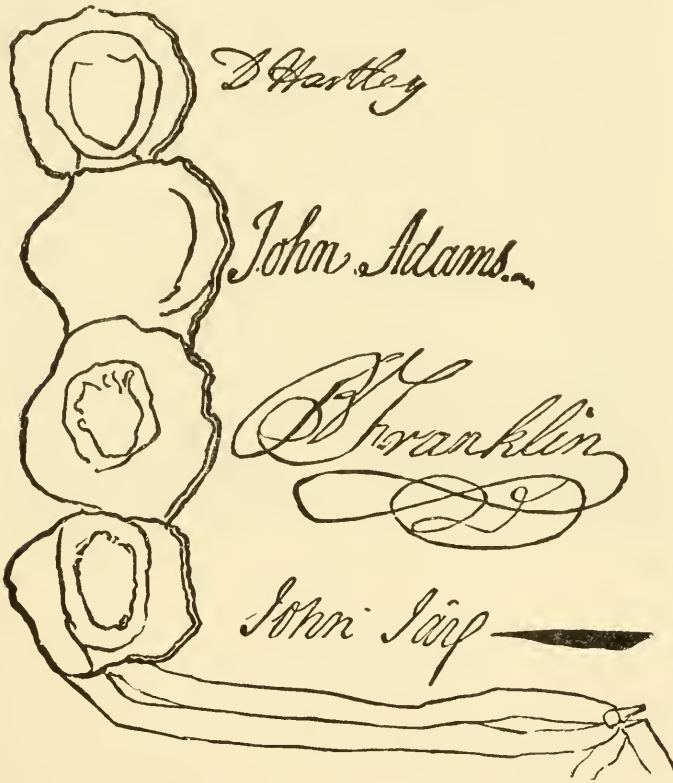 D Hartley
John Adams.
B Franklin
John Jay